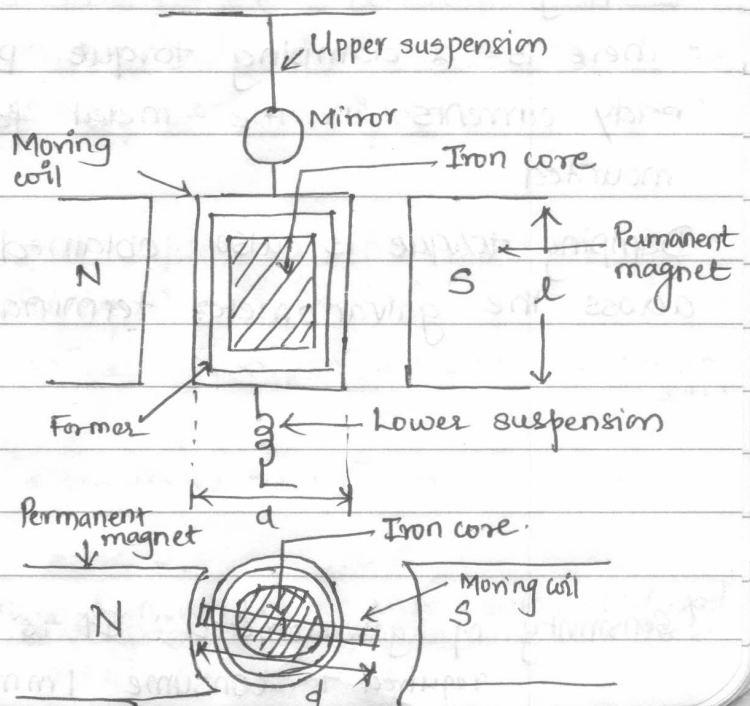 Upper suspension
Mirror
Moving
coil
Iron core
N
S
l
Permanent
magnet
Former
Lower suspension
d
Permanent
magnet
Iron core.
Moving coil
N
S
d